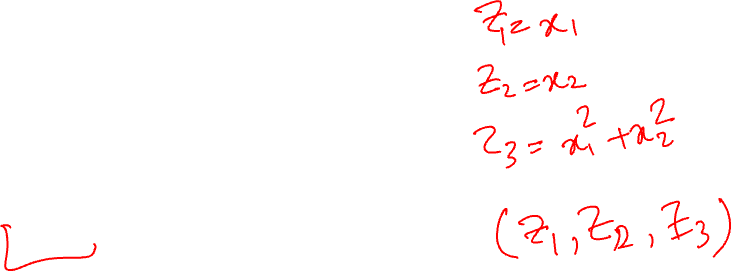 z₁ = x₁
z₂ = x₂
z₃ = x₁² + x₂²
(z₁, z₂, z₃)